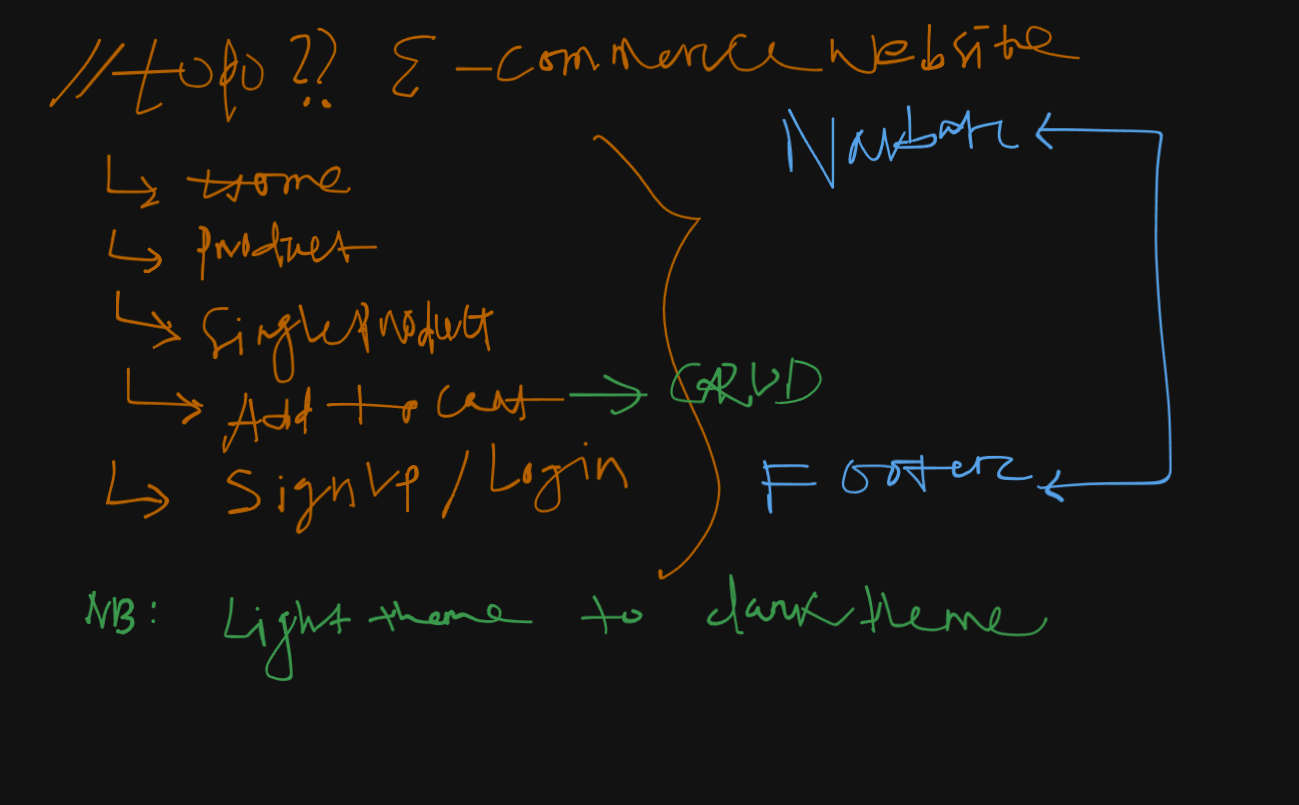 //topo?? E-commerce website
Navbar
Home
Product
SingleProduct
Add to cart → CRUD
SignUp/Login
Footer
NB: Light theme to dark theme